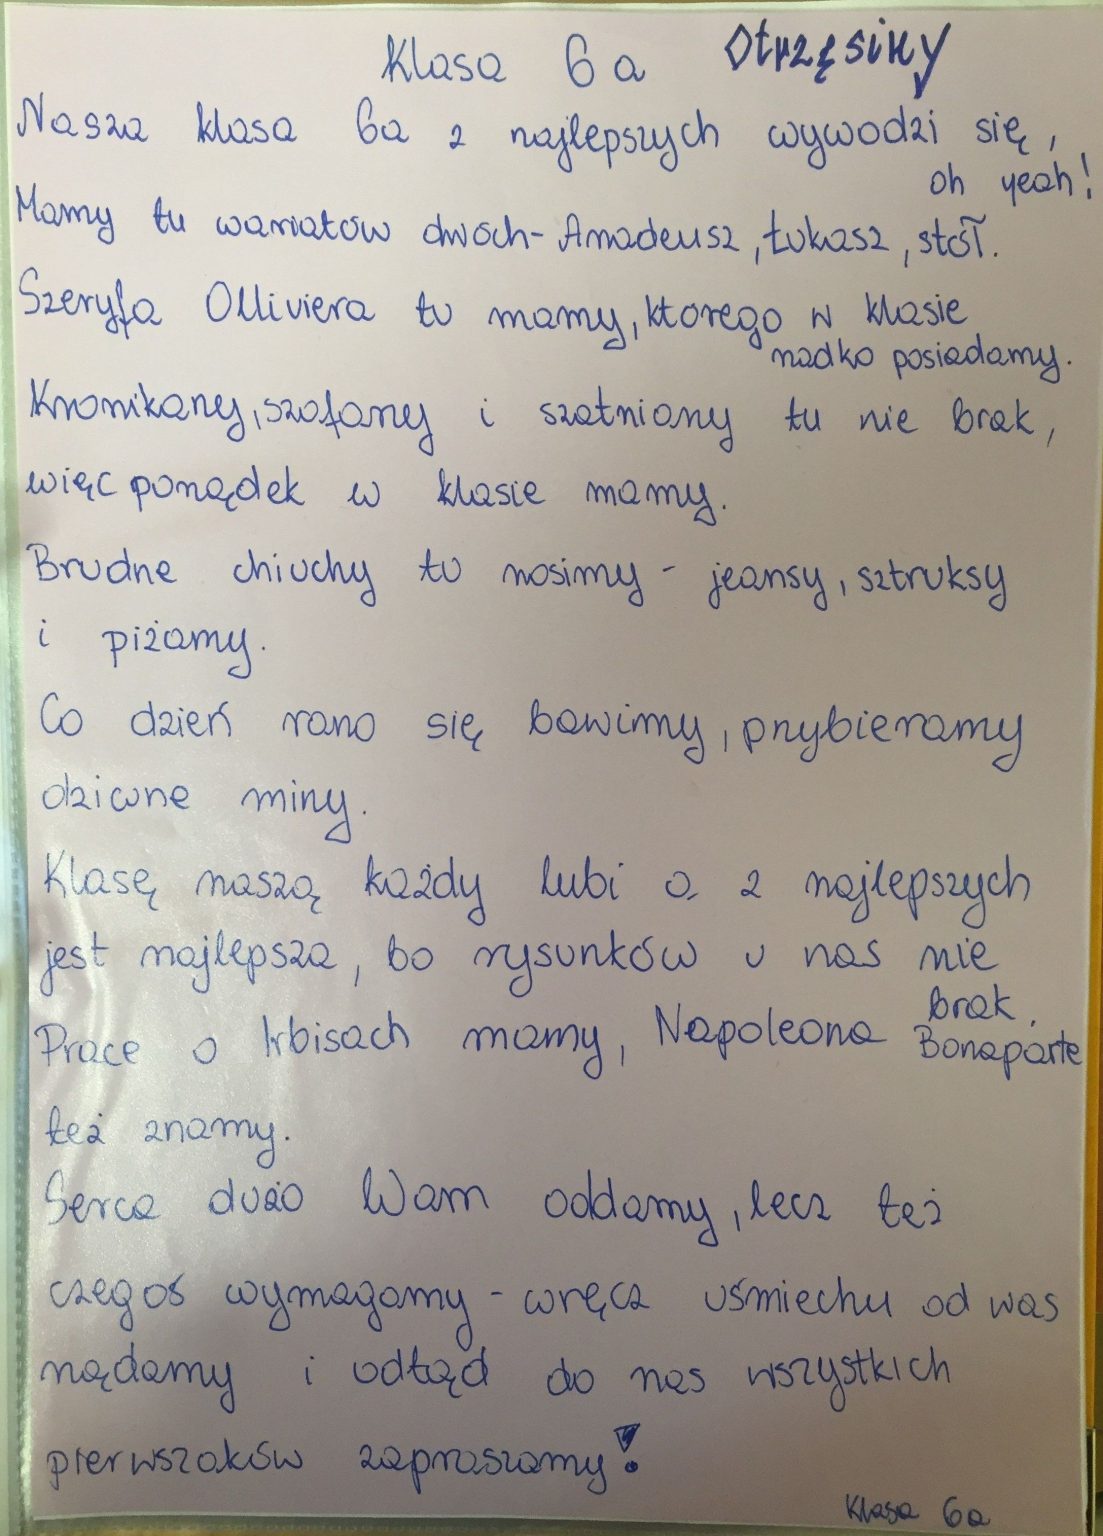 Klasa 6a Otrzęsiny
Nasza klasa 6a z najlepszych wywodzi się,
oh yeah!
Mamy tu wariatów dwóch - Amadeusz, Łukasz, stół.
Szeryfa Olliviera tu mamy, ktorego w klasie
rzadko posiadamy.
Kronikarzy, szafarzy i szatniarzy tu nie brak,
więc porządek w klasie mamy.
Brudne chiuchy tu nosimy - jeansy, sztruksy
i piżamy.
Co dzień rano się bawimy, przybieramy
dziwne miny.
Klasę naszą każdy lubi a z najlepszych
jest najlepsza, bo rysunków u nas nie
brak.
Prace o Irbisach mamy, Napoleona Bonaparte
też znamy.
Serca dużo Wam oddamy, lecz też
czegoś wymagamy - wręcz uśmiechu od was
żądamy i odtąd do nas wszystkich
pierwszaków zapraszamy!
Klasa 6a